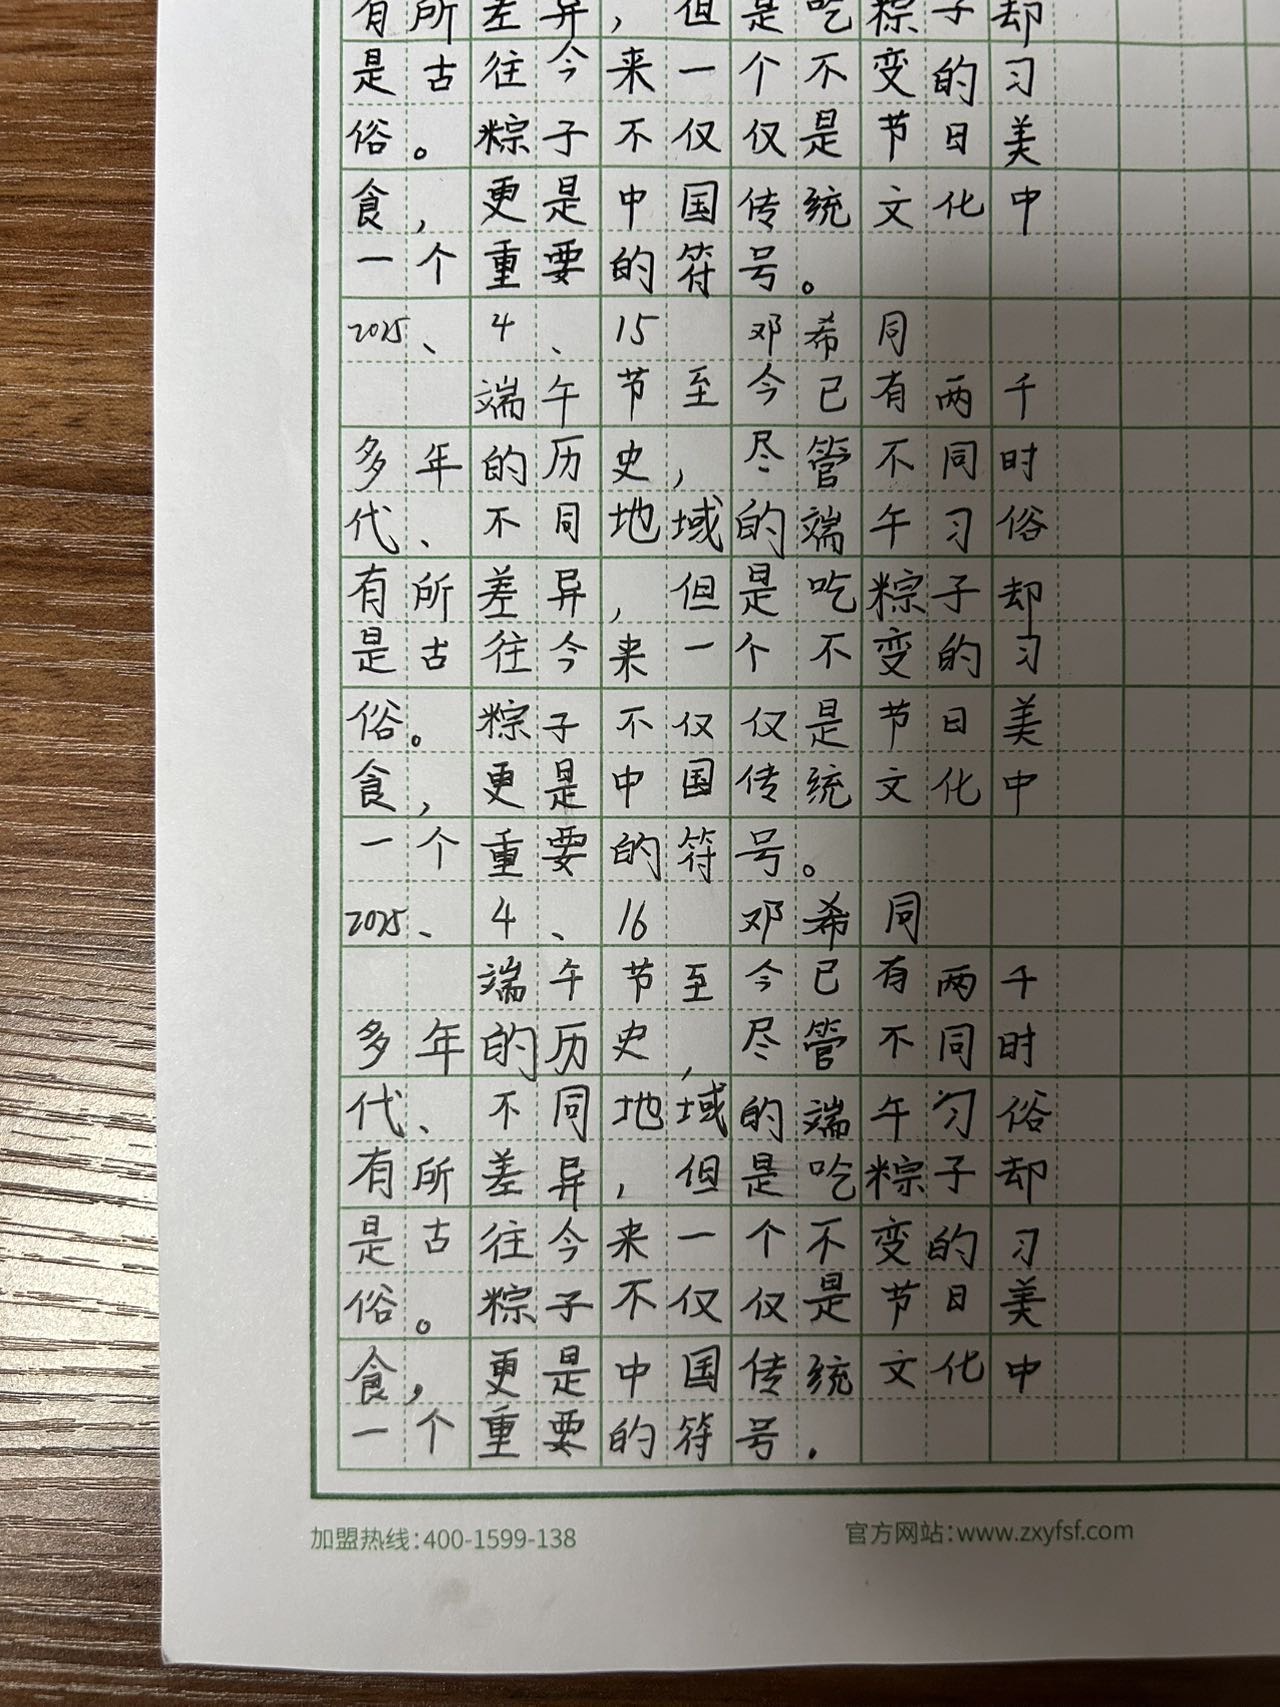 有所差异，但是吃粽子却
是古往今来一个不变的习
俗。粽子不仅仅是节日美
食，更是中国传统文化中
一个重要的符号。
2025、4、15 邓希同
端午节至今已有两千
多年的历史，尽管不同时
代、不同地域的端午习俗
有所差异，但是吃粽子却
是古往今来一个不变的习
俗。粽子不仅仅是节日美
食，更是中国传统文化中
一个重要的符号。
2025、4、16 邓希同
端午节至今已有两千
多年的历史，尽管不同时
代、不同地域的端午习俗
有所差异，但是吃粽子却
是古往今来一个不变的习
俗。粽子不仅仅是节日美
食，更是中国传统文化中
一个重要的符号.
加盟热线：400-1599-138 官方网站：www.zxyfsf.com